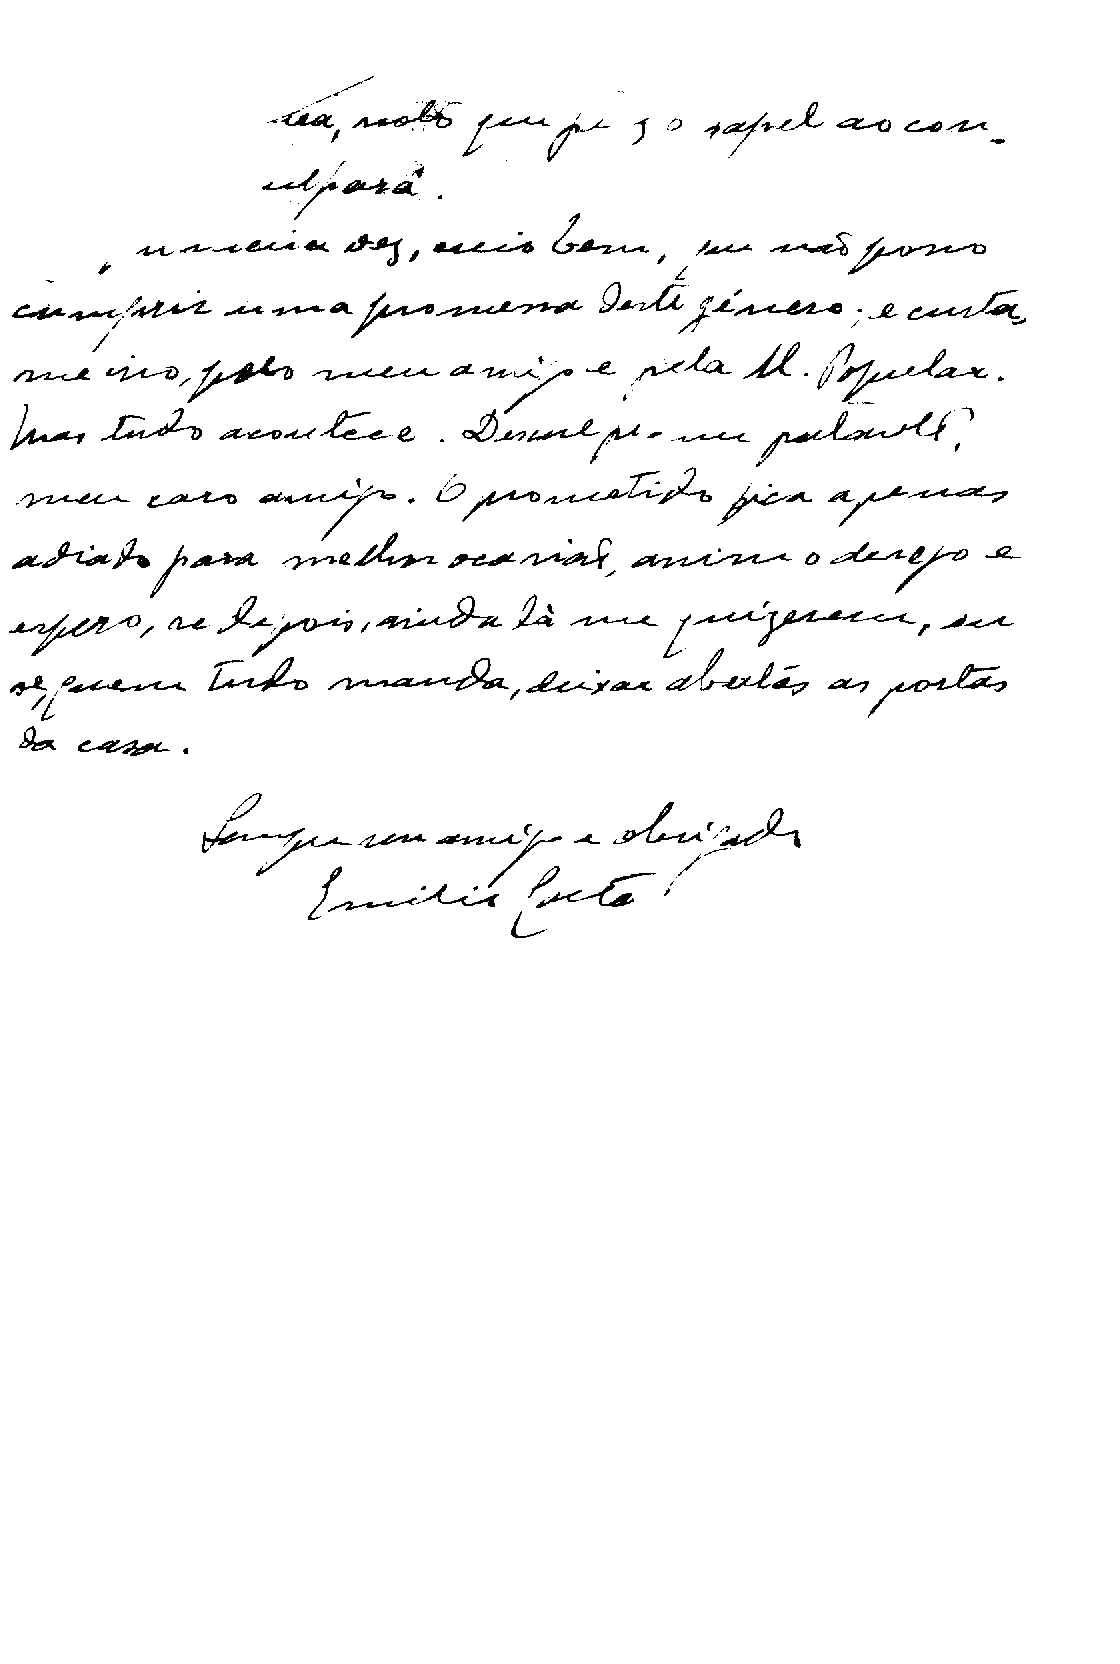 noto que o papel ao con-
culpará.
vez, creio bem, que não posso
cumprir uma promessa deste género; e custa-
me isso, pelo meu amigo e pela U. Popular.
Mas tudo acontece. Desculpe-me portanto,
meu caro amigo. O prometido fica apenas
adiado para melhor ocasião, assim o desejo e
espero, se depois, ainda lá me quizerem, ou
se, quem tudo manda, deixar abertas as portas
da casa.
Sempre seu amigo e obrigado
Emilio Costa